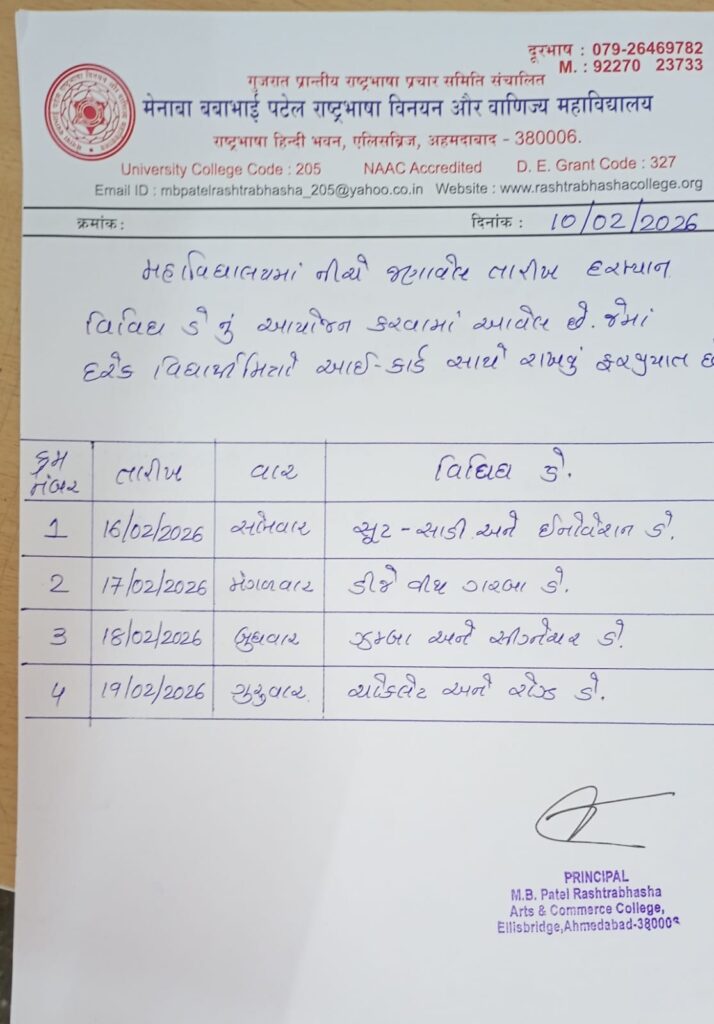 दूरभाष : 079-26469782
M. : 92270 23733
गुजरात प्रान्तीय राष्ट्रभाषा प्रचार समिति संचालित
मेनाबा बबाभाई पटेल राष्ट्रभाषा विनयन और वाणिज्य महाविद्यालय
राष्ट्रभाषा हिन्दी भवन, एलिसब्रिज, अहमदाबाद - 380006.
University College Code : 205 NAAC Accredited D. E. Grant Code : 327
Email ID : mbpatelrashtrabhasha_205@yahoo.co.in Website : www.rashtrabhashacollege.org
क्रमांक : दिनांक : 10/02/2026
મહાવિદ્યાલયમાં નીચે જણાવેલ તારીખ દરમ્યાન
વિવિધ ડે નું આયોજન કરવામાં આવેલ છે. જેમાં
દરેક વિદ્યાર્થીમિત્રો આઈ-કાર્ડ સાથે રાખવું ફરજીયાત છે
ક્રમ નંબર તારીખ વાર વિવિધ ડે.
1 16/02/2026 સોમવાર સૂટ - સાડી અને ઈનોવેશન ડે.
2 17/02/2026 મંગળવાર ડીજે વીથ ગરબા ડે.
3 18/02/2026 બુધવાર ઝુમ્બા અને સીગ્નેચર ડે.
4 19/02/2026 ગુરુવાર ચોકલેટ અને રોઝ ડે.
PRINCIPAL
M.B. Patel Rashtrabhasha
Arts & Commerce College,
Ellisbridge,Ahmedabad-380006